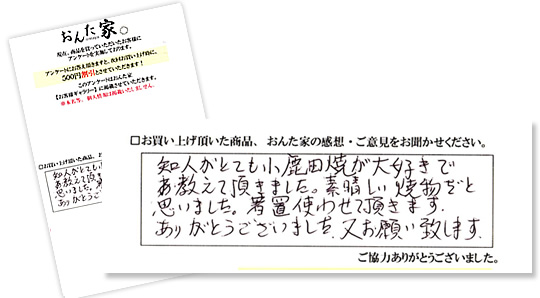 おんた家。
現在、商品を買っていただいたお客様に
アンケートを実施しております。
アンケートにお答え頂きますと、次回お買い上げ時に、
500円割引とさせていただきます!
このアンケートはおんた家
【お客様ギャラリー】に掲載させていただきます。
※お名前等、個人情報は掲載いたしません。
□お買い上げ頂いた商品、おんた家の感想・ご意見をお聞かせください。
知人がとても小鹿田焼が大好きで
お教えて頂きました。素晴しい焼物だと
思いました。箸置使わせて頂きます。
ありがとうございました。又お願い致します。
ご協力ありがとうございました。